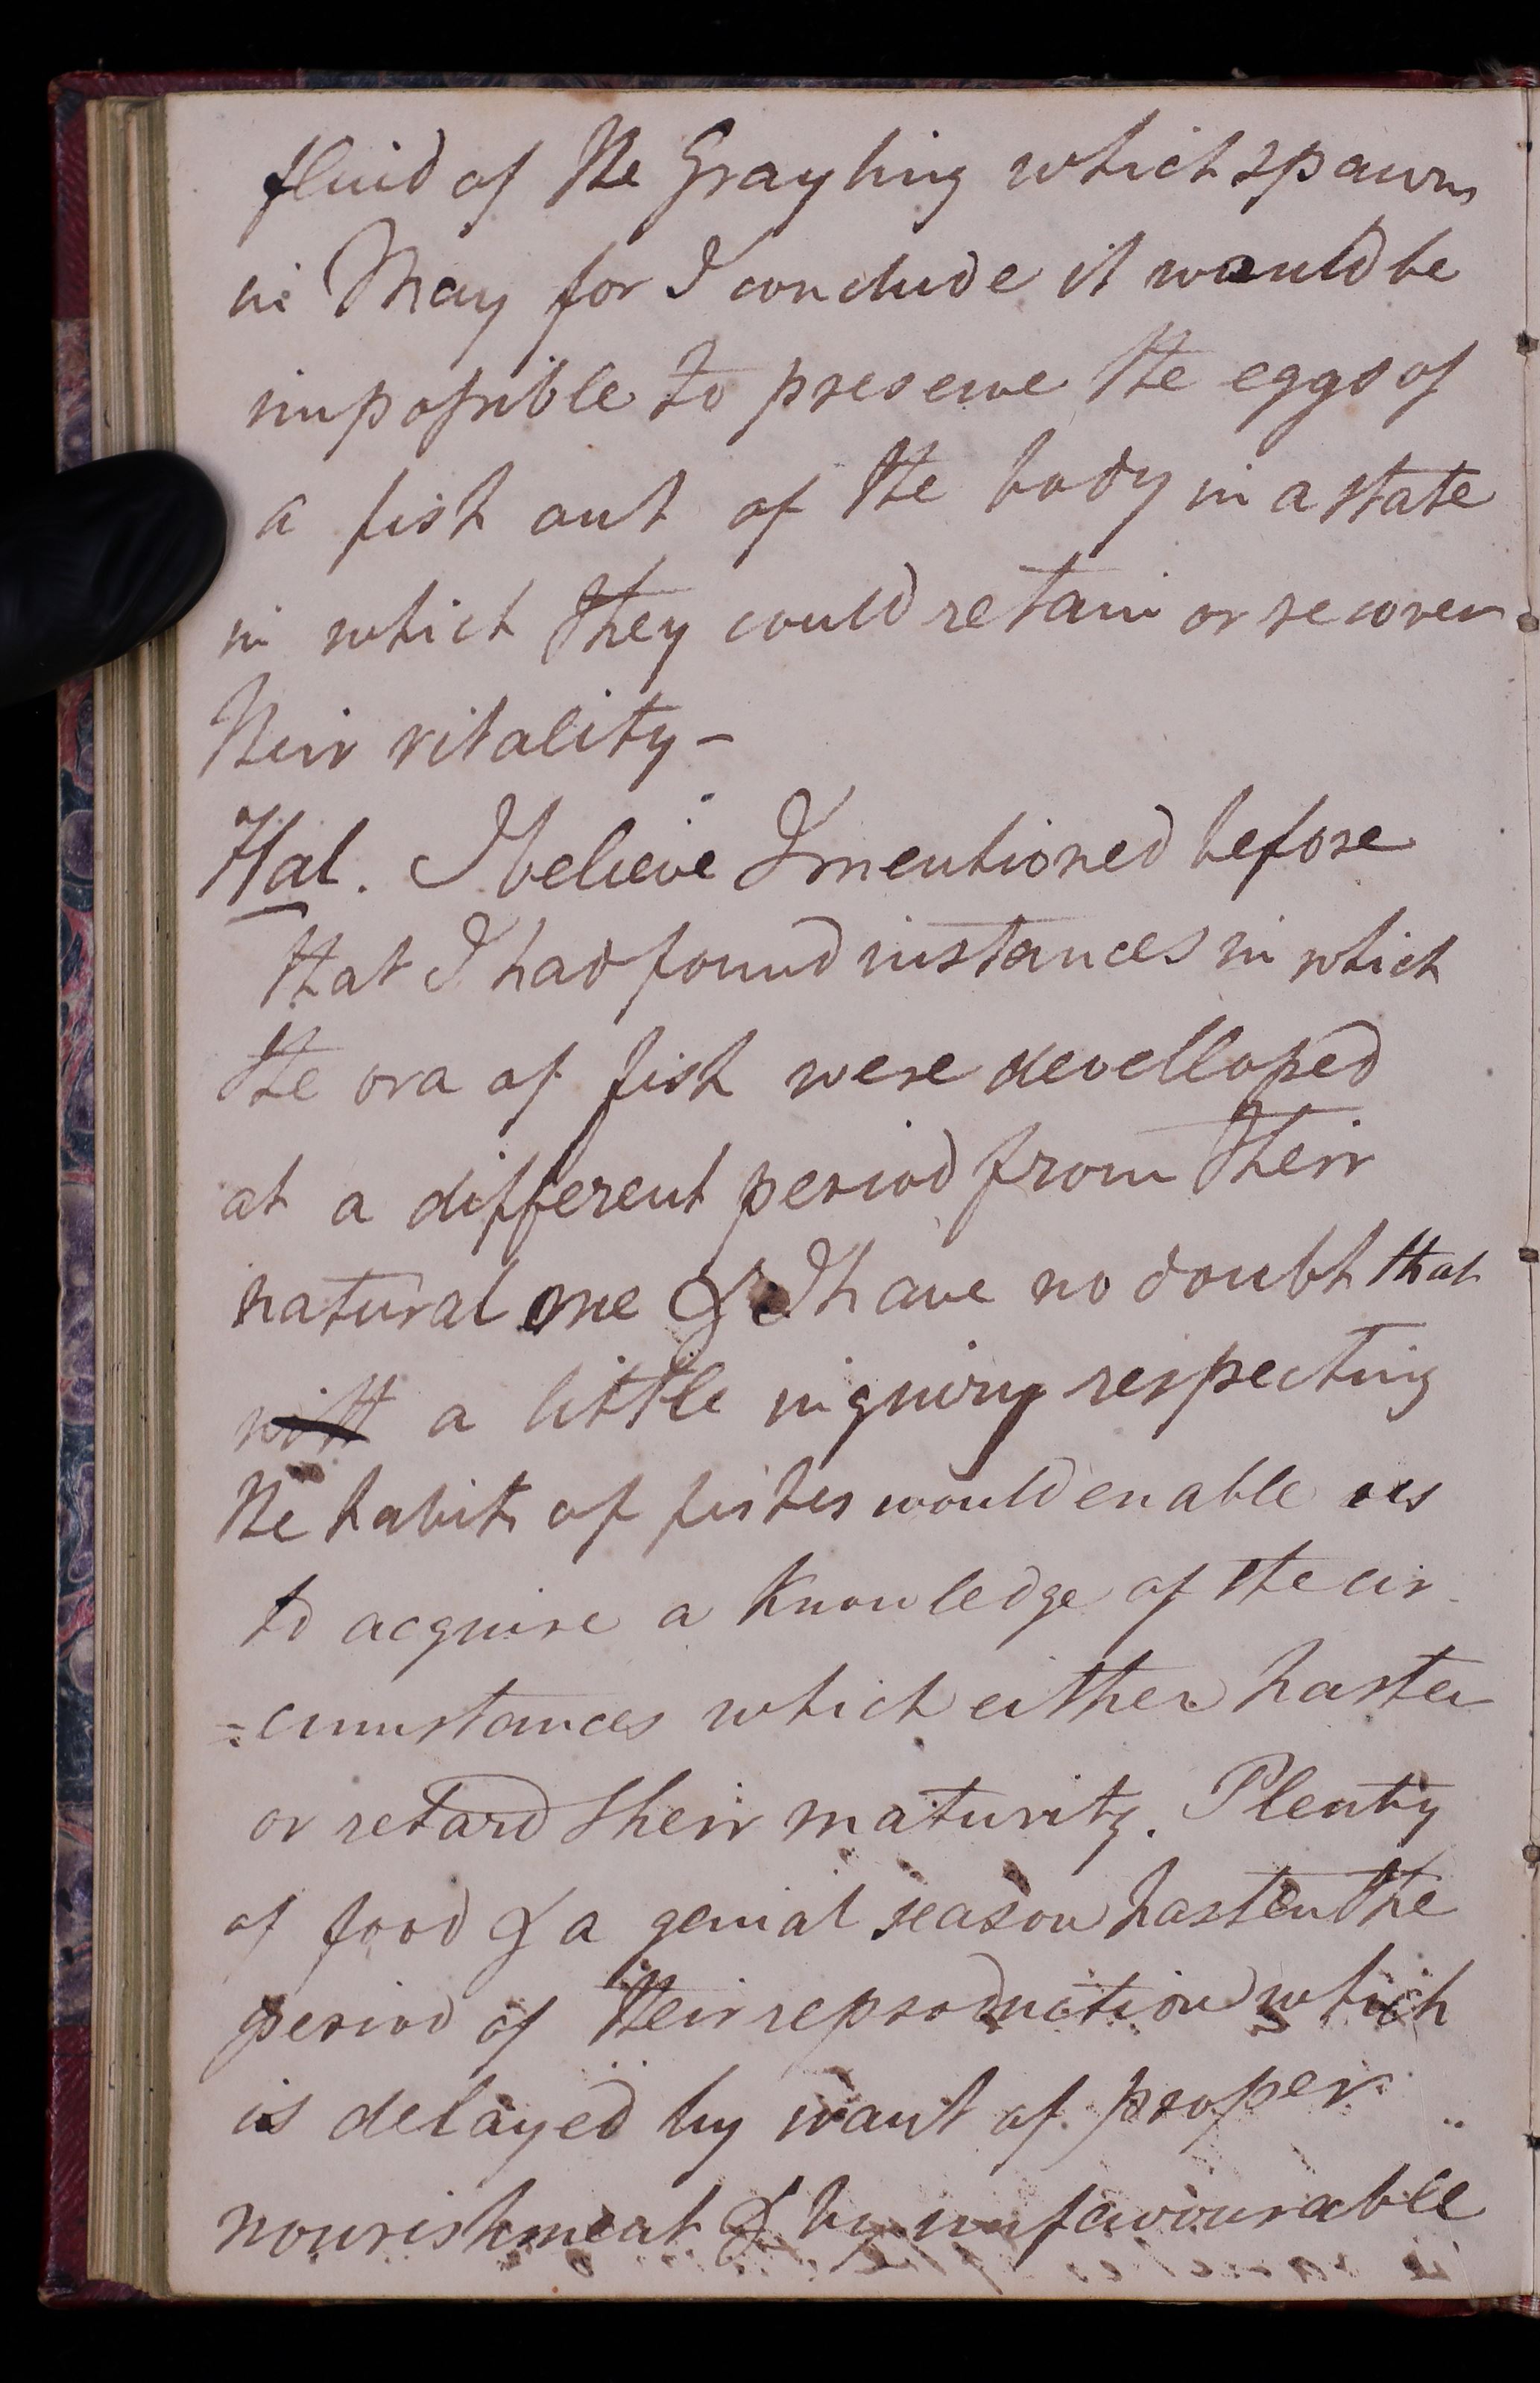 fluid of the Grayling which spawns
in May for I conclude it would be
impossible to preserve the eggs of
a fish out of the body in a state
in which they could retain or recover
their vitality –
Hal. I believe I mentioned before
that I had found instances in which
the ova of fish were develloped
at a different period from their
natural one & I have no doubt that
with a little inquiry respecting
the habits of fishes would enable us
to acquire a knowledge of the cir
=cumstances which either hasten
or retard their maturity. Plenty
of food & a genial season hasten the
period of their reproduction which
is delayed by want of proper
nourishment & by unfavourable